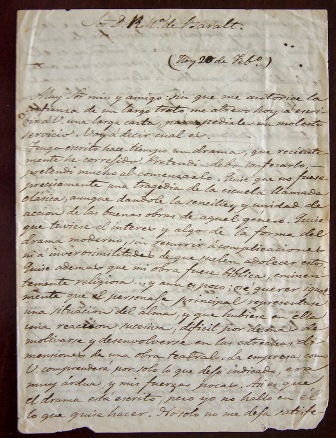 S. D. R. Mª de Baralt.
(Hoy 20 de Febº.)
Muy Sr. mio y amigo: sin que me autorice la
de un largo trato me atrevo hoy á escri-
bir á V. una larga carta, para pedirle un molesto
servicio. Voy á decir cual es.
Tengo escrito hace tiempo un drama, que reciente-
mente he corregido. Pretendí, debo confesarlo,
pretendí mucho al comenzarlo. Quise que no fuese
precisamente una tragedia de la escuela llamada
clásica, aunque dandole la sencillez y unidad de
accion de las buenas obras de aquel genero. Quise
que tuviese el interes y algo de la forma del
drama moderno, sin recurrir á complicaciones
ni á inverosimilitudes de que suelen adolecer estos.
Quise ademas que mi obra fuese bíblica, eminen-
temente religiosa, y querer igual-
mente que el personaje principal representase
una situacion del alma, y que hubiese en ella
una reaccion sucesiva, dificil por demas de
motivarse y desenvolverse en las estrechas di-
mensiones de una obra teatral. La empresa, como
V. comprenderá por solo lo que dejo indicado, era
muy árdua, y mis fuerzas pocas. Asi es que
el drama está escrito, pero yo no hallo en él
lo que quise hacer. No solo no me deja satisfe-